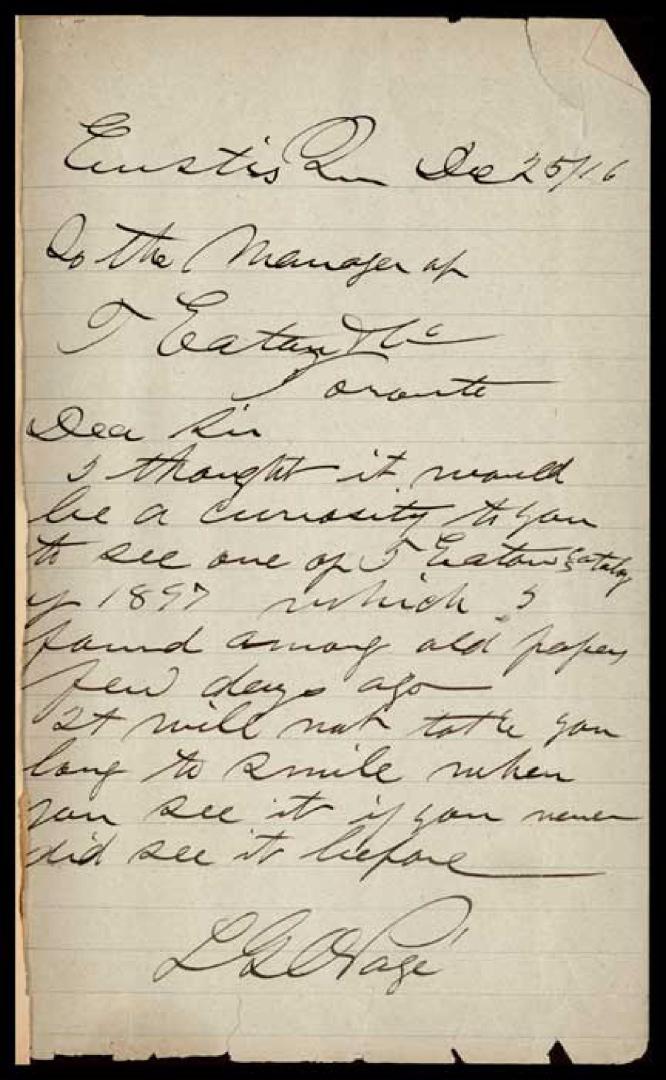 Eustis Que Dec 25/16
To the Manager of
T Eaton & Co
Toronto
Dea Sir
I thought it would
be a curiosity to you
to see one of T Eatons Catalog
of 1897 which I
found among old papers
few days ago
It will not take you
long to smile when
you see it if you never
did see it before
L G Pagé